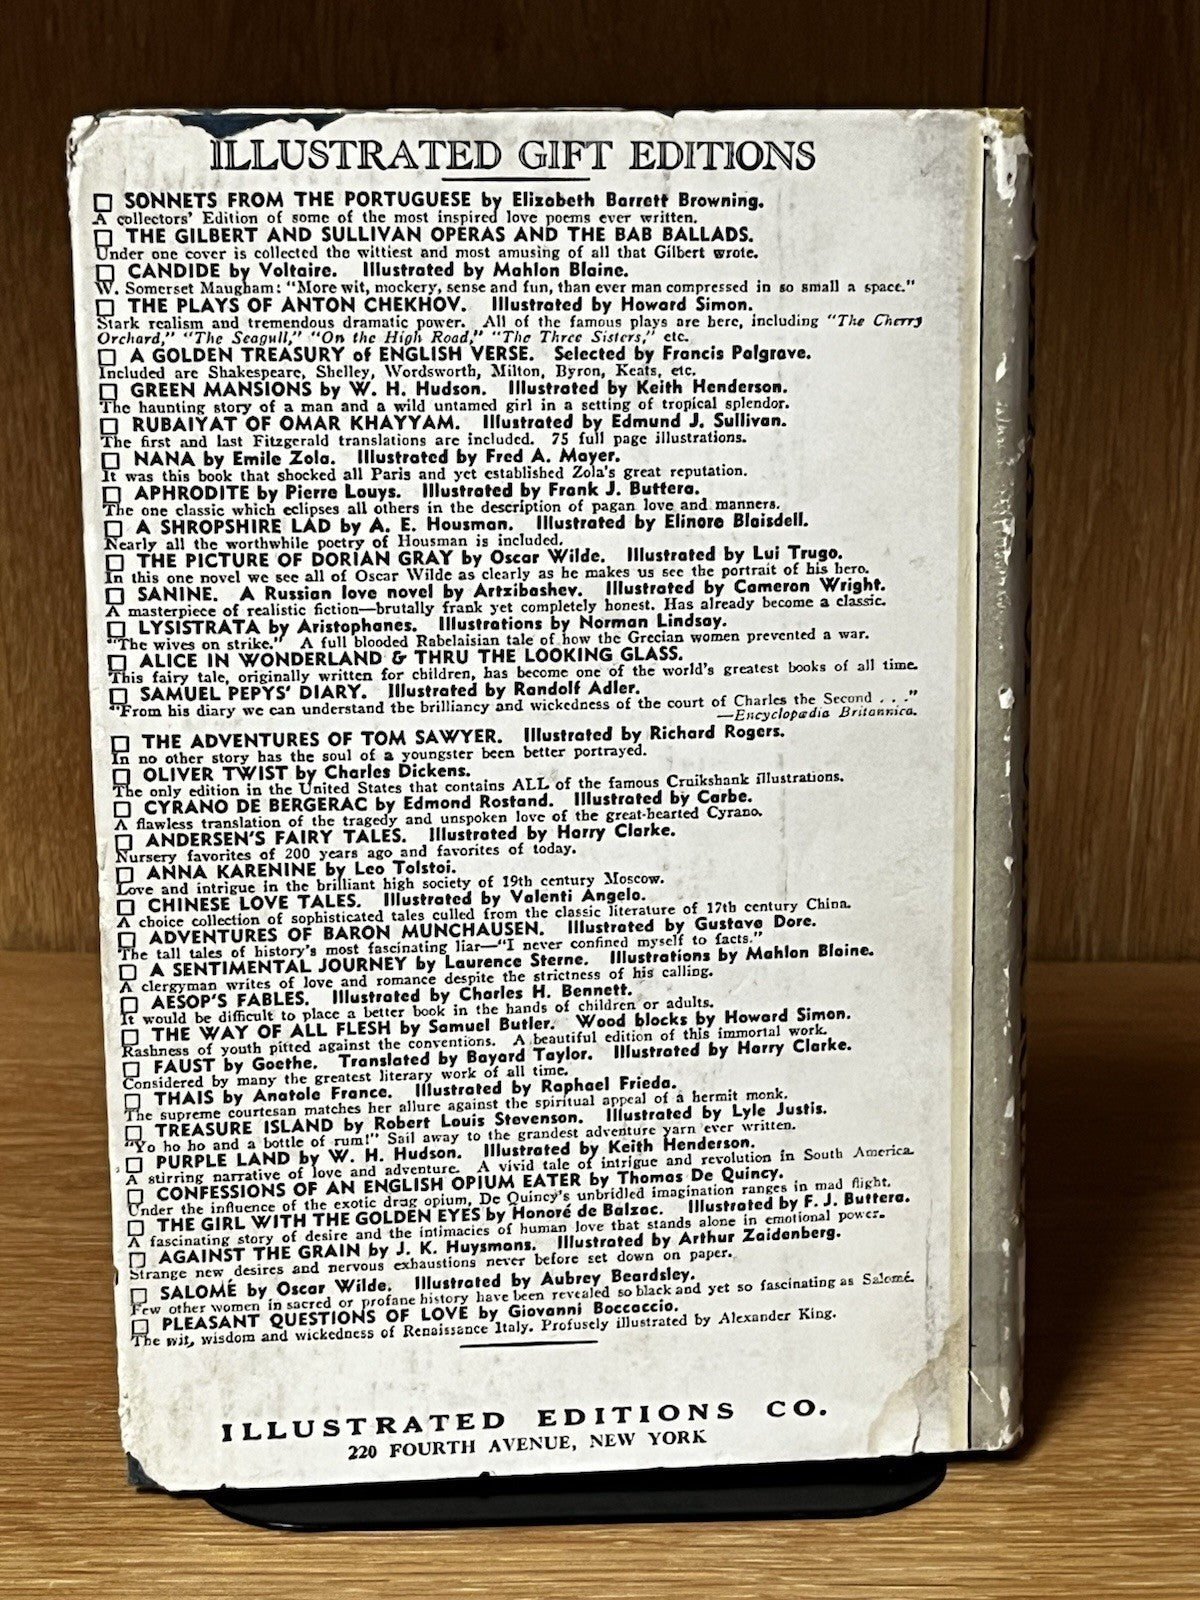 ILLUSTRATED GIFT EDITIONS
☐ SONNETS FROM THE PORTUGUESE by Elizabeth Barrett Browning.
A collectors' Edition of some of the most inspired love poems ever written.
☐ THE GILBERT AND SULLIVAN OPERAS AND THE BAB BALLADS.
Under one cover is collected the wittiest and most amusing of all that Gilbert wrote.
☐ CANDIDE by Voltaire. Illustrated by Mahlon Blaine.
W. Somerset Maugham: "More wit, mockery, sense and fun, than ever man compressed in so small a space."
☐ THE PLAYS OF ANTON CHEKHOV. Illustrated by Howard Simon.
Stark realism and tremendous dramatic power. All of the famous plays are here, including "The Cherry
Orchard," "The Seagull," "On the High Road," "The Three Sisters," etc.
☐ A GOLDEN TREASURY of ENGLISH VERSE. Selected by Francis Palgrave.
Included are Shakespeare, Shelley, Wordsworth, Milton, Byron, Keats, etc.
☐ GREEN MANSIONS by W. H. Hudson. Illustrated by Keith Henderson.
The haunting story of a man and a wild untamed girl in a setting of tropical splendor.
☐ RUBAIYAT OF OMAR KHAYYAM. Illustrated by Edmund J. Sullivan.
The first and last Fitzgerald translations are included. 75 full page illustrations.
☐ NANA by Emile Zola. Illustrated by Fred A. Mayer.
It was this book that shocked all Paris and yet established Zola's great reputation.
☐ APHRODITE by Pierre Louys. Illustrated by Frank J. Buttera.
The one classic which eclipses all others in the description of pagan love and manners.
☐ A SHROPSHIRE LAD by A. E. Housman. Illustrated by Elinore Blaisdell.
Nearly all the worthwhile poetry of Housman is included.
☐ THE PICTURE OF DORIAN GRAY by Oscar Wilde. Illustrated by Lui Trugo.
In this one novel we see all of Oscar Wilde as clearly as he makes us see the portrait of his hero.
☐ SANINE. A Russian love novel by Artzibashev. Illustrated by Cameron Wright.
A masterpiece of realistic fiction—brutally frank yet completely honest. Has already become a classic.
☐ LYSISTRATA by Aristophanes. Illustrations by Norman Lindsay.
"The wives on strike." A full blooded Rabelaisian tale of how the Grecian women prevented a war.
☐ ALICE IN WONDERLAND & THRU THE LOOKING GLASS.
This fairy tale, originally written for children, has become one of the world's greatest books of all time.
☐ SAMUEL PEPYS' DIARY. Illustrated by Randolf Adler.
"From his diary we can understand the brilliancy and wickedness of the court of Charles the Second . . ."
—Encyclopædia Britannica.
☐ THE ADVENTURES OF TOM SAWYER. Illustrated by Richard Rogers.
In no other story has the soul of a youngster been better portrayed.
☐ OLIVER TWIST by Charles Dickens.
The only edition in the United States that contains ALL of the famous Cruikshank illustrations.
☐ CYRANO DE BERGERAC by Edmond Rostand. Illustrated by Carbe.
A flawless translation of the tragedy and unspoken love of the great-hearted Cyrano.
☐ ANDERSEN'S FAIRY TALES. Illustrated by Harry Clarke.
Nursery favorites of 200 years ago and favorites of today.
☐ ANNA KARENINE by Leo Tolstoi.
Love and intrigue in the brilliant high society of 19th century Moscow.
☐ CHINESE LOVE TALES. Illustrated by Valenti Angelo.
A choice collection of sophisticated tales culled from the classic literature of 17th century China.
☐ ADVENTURES OF BARON MUNCHAUSEN. Illustrated by Gustave Dore.
The tall tales of history's most fascinating liar—"I never confined myself to facts."
☐ A SENTIMENTAL JOURNEY by Laurence Sterne. Illustrations by Mahlon Blaine.
A clergyman writes of love and romance despite the strictness of his calling.
☐ AESOP'S FABLES. Illustrated by Charles H. Bennett.
It would be difficult to place a better book in the hands of children or adults.
☐ THE WAY OF ALL FLESH by Samuel Butler. Wood blocks by Howard Simon.
Rashness of youth pitted against the conventions. A beautiful edition of this immortal work.
☐ FAUST by Goethe. Translated by Bayard Taylor. Illustrated by Harry Clarke.
Considered by many the greatest literary work of all time.
☐ THAIS by Anatole France. Illustrated by Raphael Frieda.
The supreme courtesan matches her allure against the spiritual appeal of a hermit monk.
☐ TREASURE ISLAND by Robert Louis Stevenson. Illustrated by Lyle Justis.
"Yo ho ho and a bottle of rum!" Sail away to the grandest adventure yarn ever written.
☐ PURPLE LAND by W. H. Hudson. Illustrated by Keith Henderson.
A stirring narrative of love and adventure. A vivid tale of intrigue and revolution in South America.
☐ CONFESSIONS OF AN ENGLISH OPIUM EATER by Thomas De Quincy.
Under the influence of the exotic drug opium, De Quincy's unbridled imagination ranges in mad flight.
☐ THE GIRL WITH THE GOLDEN EYES by Honoré de Balzac. Illustrated by F. J. Buttera.
A fascinating story of desire and the intimacies of human love that stands alone in emotional power.
☐ AGAINST THE GRAIN by J. K. Huysmans. Illustrated by Arthur Zaidenberg.
Strange new desires and nervous exhaustions never before set down on paper.
☐ SALOMÉ by Oscar Wilde. Illustrated by Aubrey Beardsley.
Few other women in sacred or profane history have been revealed so black and yet so fascinating as Salomé.
☐ PLEASANT QUESTIONS OF LOVE by Giovanni Boccaccio.
The wit, wisdom and wickedness of Renaissance Italy. Profusely illustrated by Alexander King.
ILLUSTRATED EDITIONS CO.
220 FOURTH AVENUE, NEW YORK